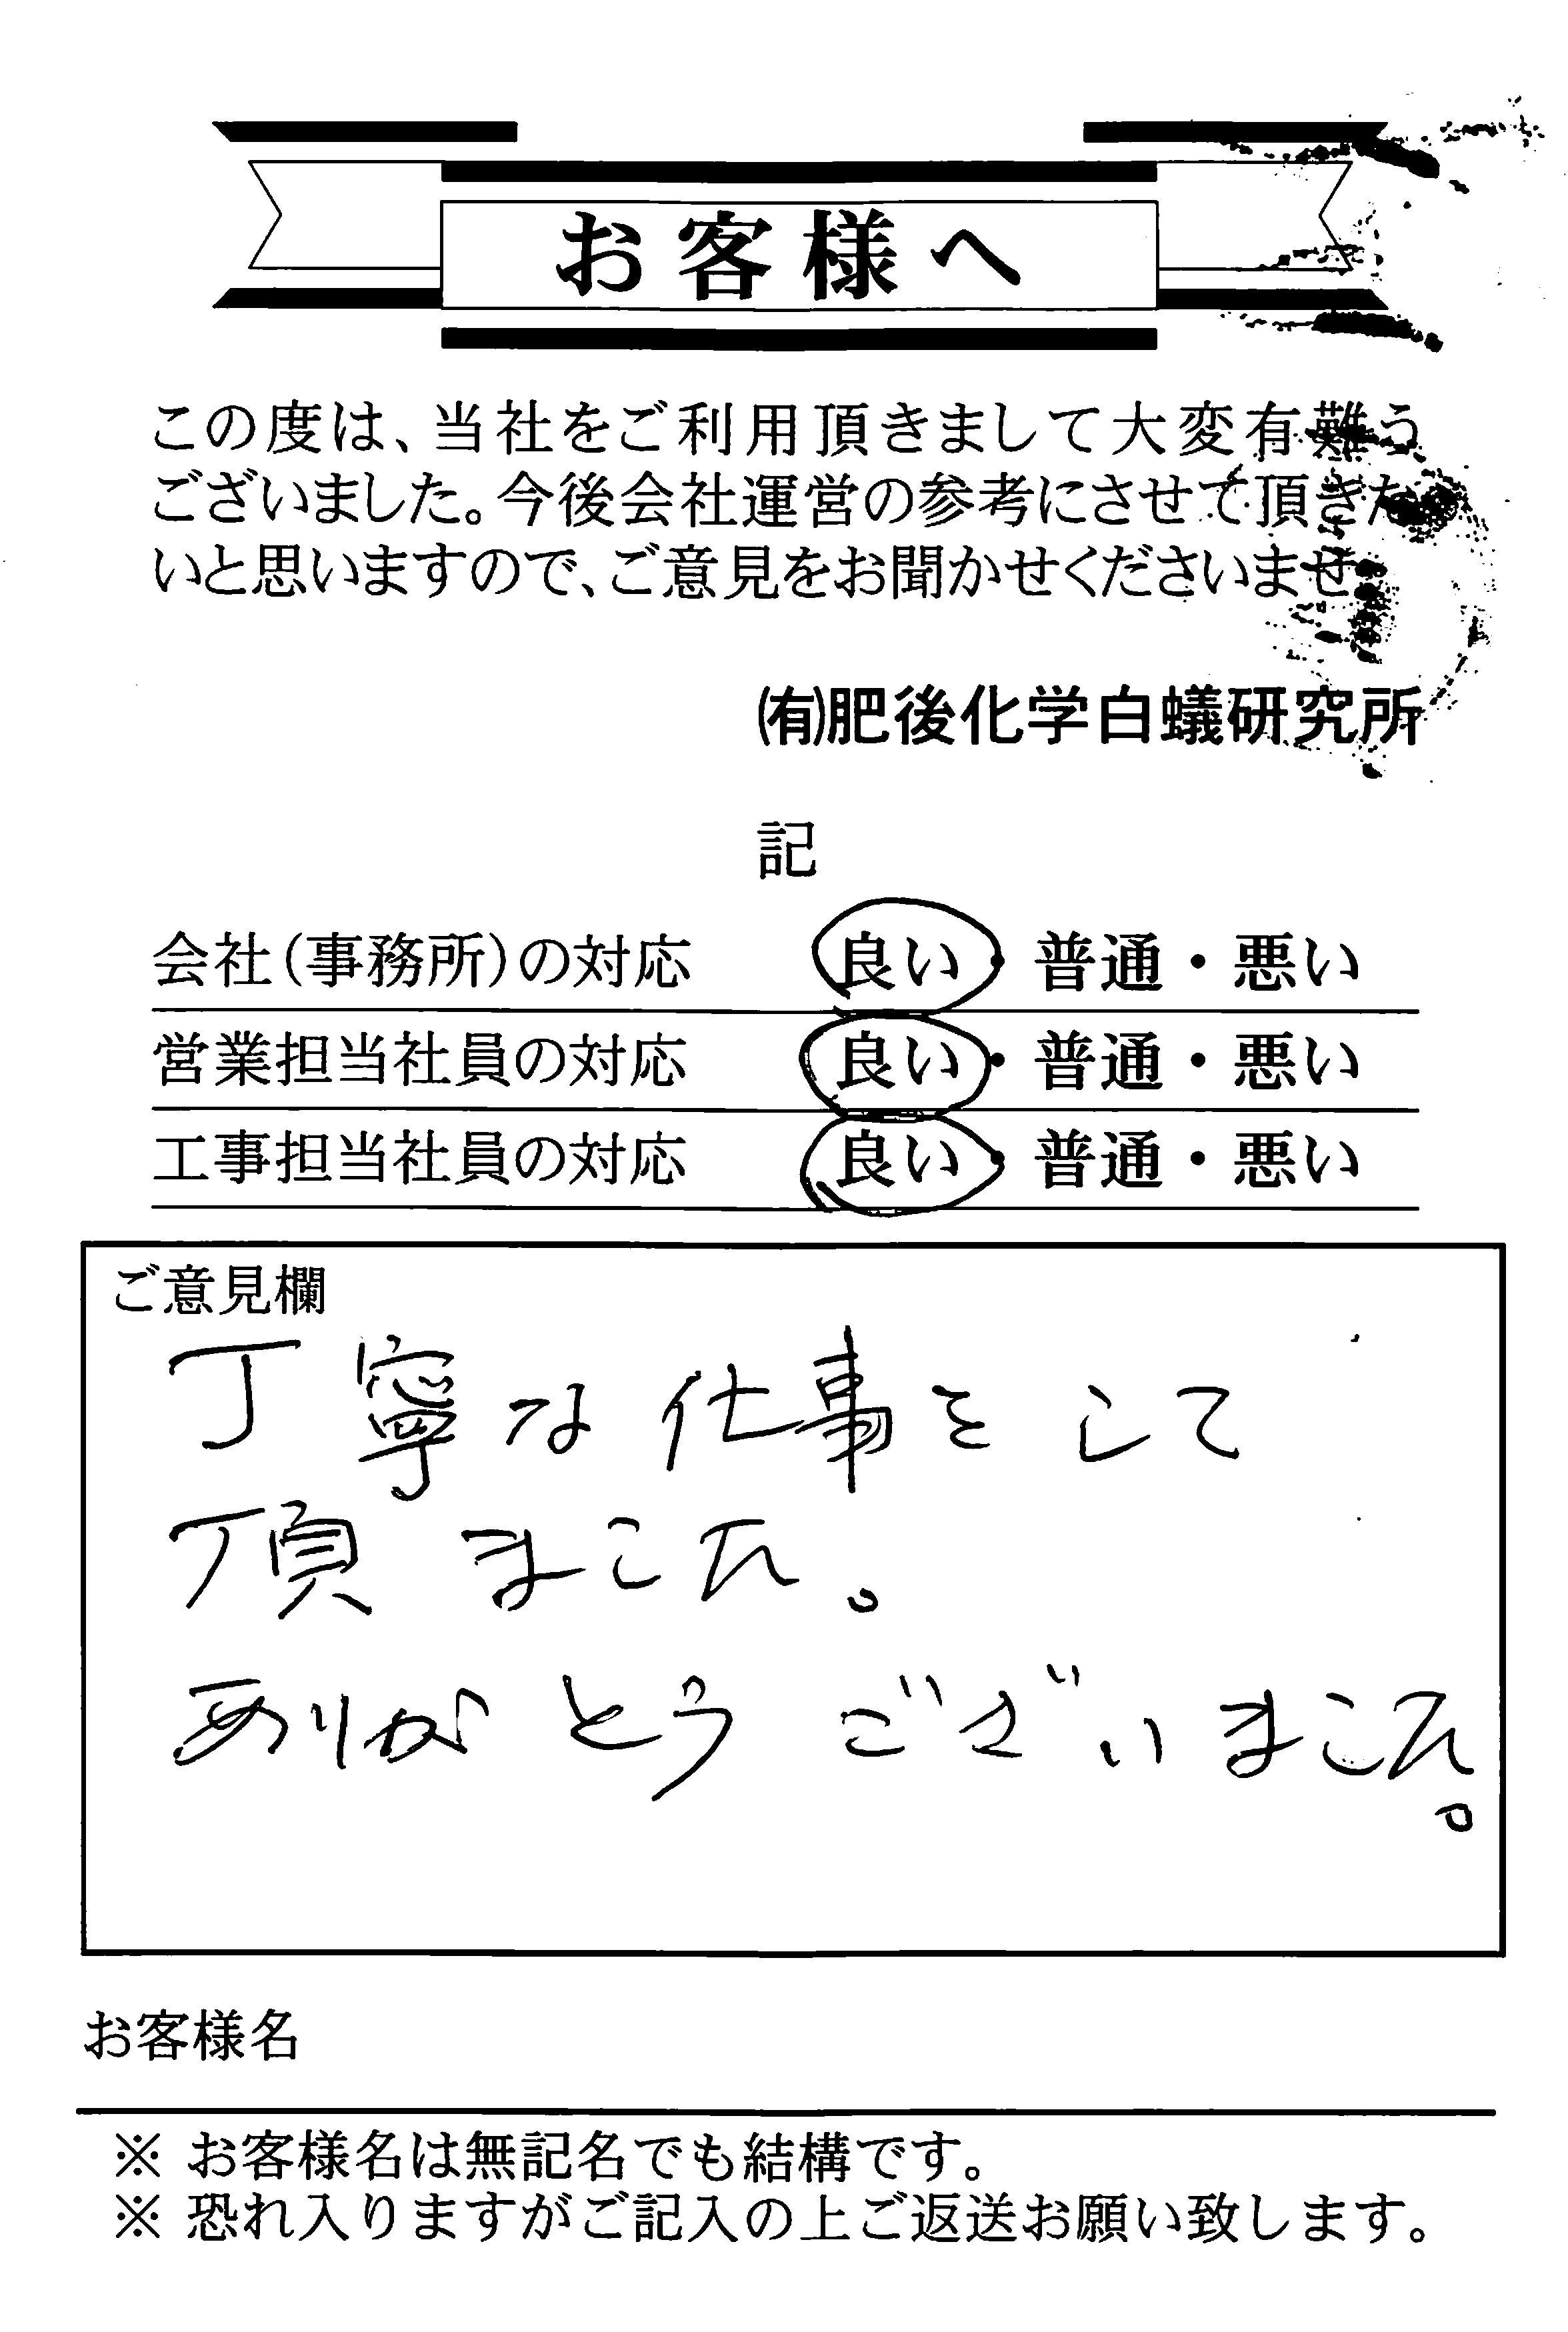 お客様へ
この度は、当社をご利用頂きまして大変有難う
ございました。今後会社運営の参考にさせて頂きた
いと思いますので、ご意見をお聞かせくださいませ
㈲肥後化学白蟻研究所
記
会社(事務所)の対応 良い・普通・悪い
営業担当社員の対応 良い・普通・悪い
工事担当社員の対応 良い・普通・悪い
ご意見欄
丁寧な仕事をして
頂ました。
ありがとうございました。
お客様名
※ お客様名は無記名でも結構です。
※ 恐れ入りますがご記入の上ご返送お願い致します。